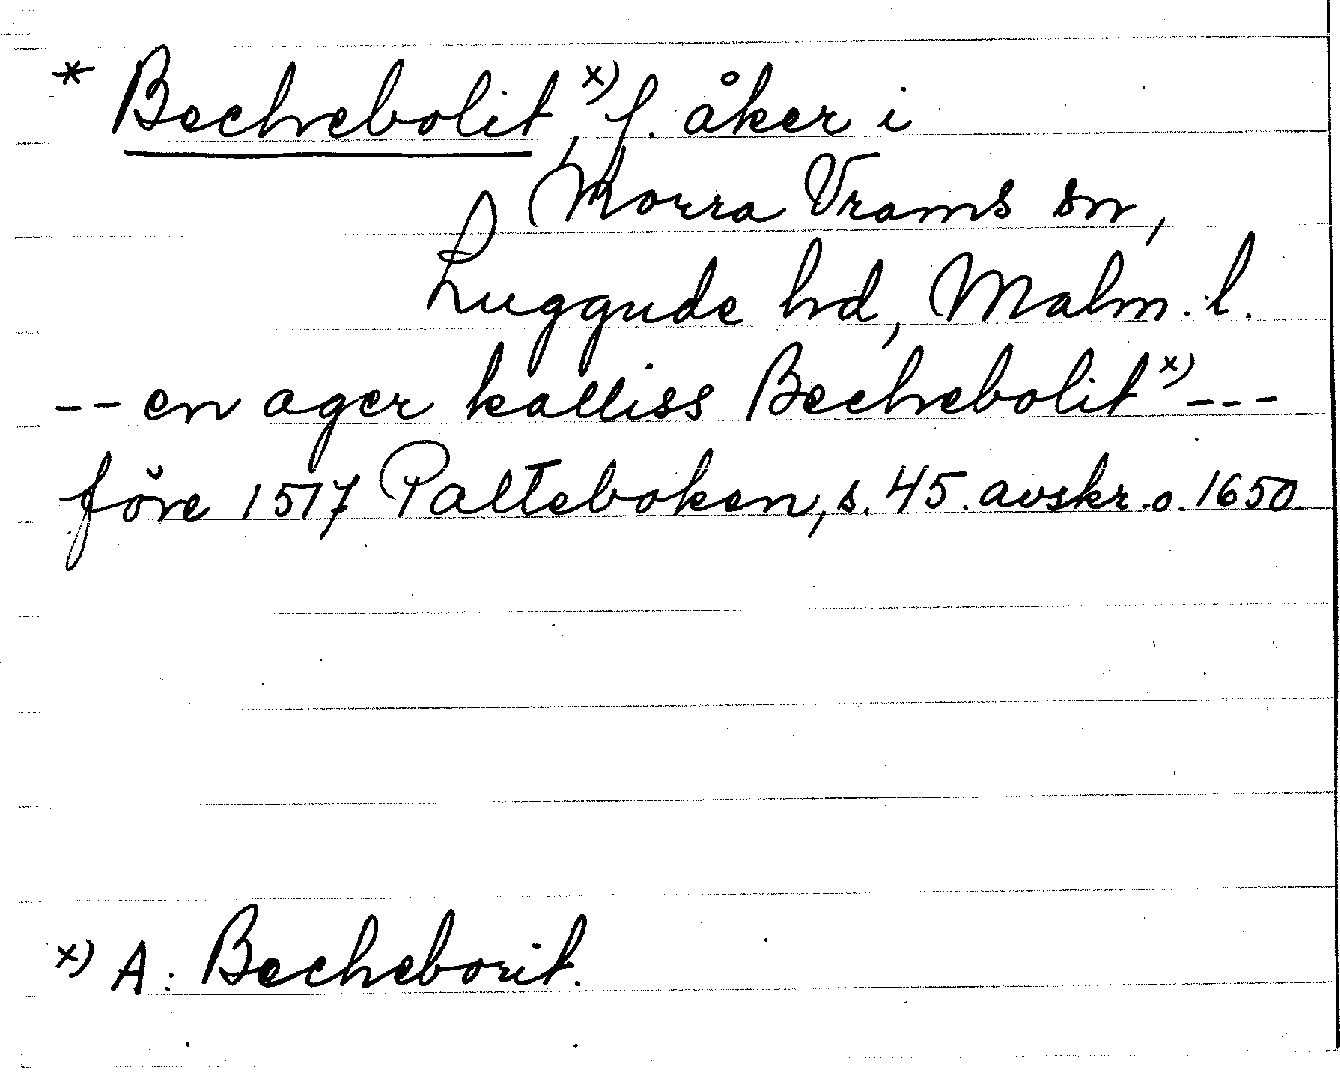 * Bechebolit,x) f. åker i
Norra Vrams sn,
Luggude hd, Malm. l.
-- en ager kalliss Bechebolit x) ---
före 1517 Palteboken, s. 45. avskr. o. 1650
x) A: Becheborit.